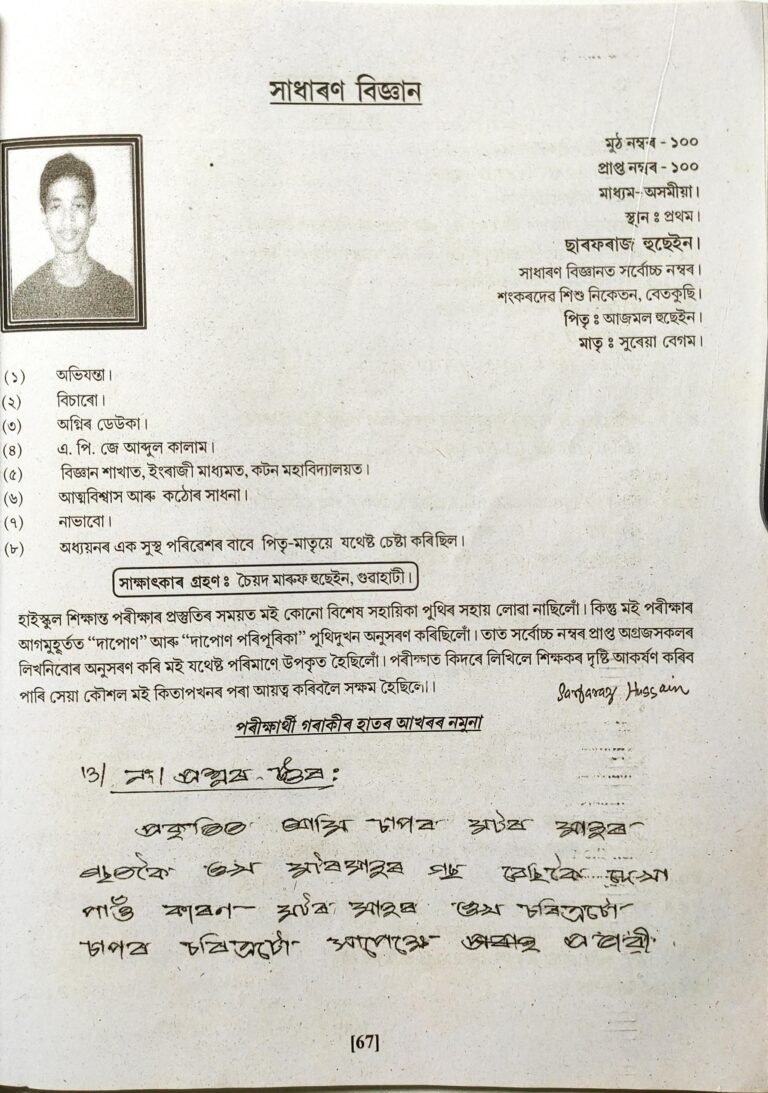 সাধাৰণ বিজ্ঞান
মুঠ নম্বৰ - ১০০
প্ৰাপ্ত নম্বৰ - ১০০
মাধ্যম- অসমীয়া।
স্থান ঃ প্ৰথম।
ছাৰফৰাজ হুছেইন।
সাধাৰণ বিজ্ঞানত সৰ্বোচ্চ নম্বৰ।
শংকৰদেৱ শিশু নিকেতন, বেতকুছি।
পিতৃ ঃ আজমল হুছেইন।
মাতৃ ঃ সুৰেয়া বেগম।
(১) অভিযন্তা।
(২) বিচাৰো।
(৩) অগ্নিৰ ডেউকা।
(৪) এ. পি. জে আব্দুল কালাম।
(৫) বিজ্ঞান শাখাত, ইংৰাজী মাধ্যমত, কটন মহাবিদ্যালয়ত।
(৬) আত্মবিশ্বাস আৰু কঠোৰ সাধনা।
(৭) নাভাবো।
(৮) অধ্যয়নৰ এক সুস্থ পৰিৱেশৰ বাবে পিতৃ-মাতৃয়ে যথেষ্ট চেষ্টা কৰিছিল।
সাক্ষাৎকাৰ গ্ৰহণ ঃ চৈয়দ মাৰুফ হুছেইন, গুৱাহাটী।
হাইস্কুল শিক্ষান্ত পৰীক্ষাৰ প্ৰস্তুতিৰ সময়ত মই কোনো বিশেষ সহায়িকা পুথিৰ সহায় লোৱা নাছিলোঁ। কিন্তু মই পৰীক্ষাৰ
আগমুহূৰ্তত “দাপোণ” আৰু “দাপোণ পৰিপূৰিকা” পুথিদুখন অনুসৰণ কৰিছিলোঁ। তাত সৰ্বোচ্চ নম্বৰ প্ৰাপ্ত অগ্ৰজসকলৰ
লিখনিবোৰ অনুসৰণ কৰি মই যথেষ্ট পৰিমাণে উপকৃত হৈছিলোঁ। পৰীক্ষাত কিদৰে লিখিলে শিক্ষকৰ দৃষ্টি আকৰ্ষণ কৰিব
পাৰি সেয়া কৌশল মই কিতাপখনৰ পৰা আয়ত্ব কৰিবলৈ সক্ষম হৈছিলো।
Sarfaraz Hussain
পৰীক্ষাৰ্থী গৰাকীৰ হাতৰ আখৰৰ নমুনা
১৩। নং। প্ৰশ্নৰ উত্তৰ :
প্ৰকৃতিত আমি চাপৰ মটৰ মাহৰ
গছতকৈ ওখ মটৰমাহৰ গছ বেছিকৈ দেখা
পাওঁ কাৰণ- মটৰ মাহৰ ওখ চৰিত্ৰটো
চাপৰ চৰিত্ৰটো সাপেক্ষে প্ৰভাৱী
[67]